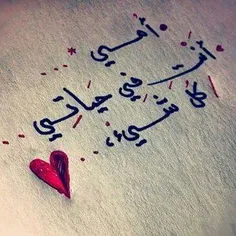 أمي
أنت
كل
شيء في حياتي